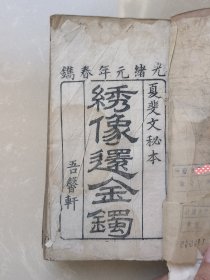 光緒元年春鐫
夏斐文秘本
綉像還金鐲
吾馨軒